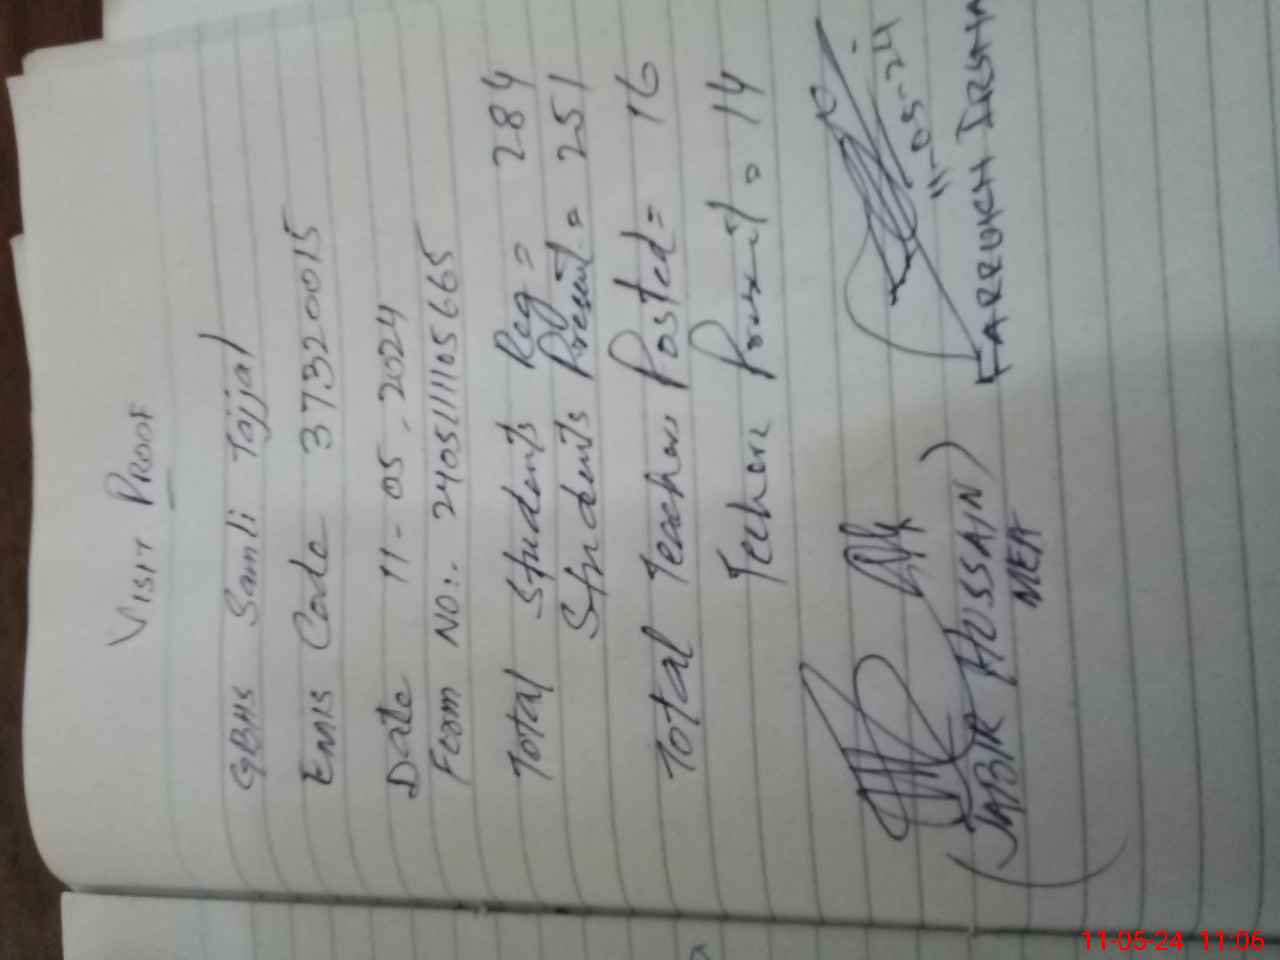 VISIT PROOF
GBHS Samli Tajjal
EMIS Code 37320015
Date 11-05-2024
Form NO:. 240511105665
Total Students Reg = 284
Students Present = 251
Total Teachers Posted = 16
Techer Present = 14
11-05-24
(JABIR HUSSAIN)
MEA
FARRUKH
11-05-24 11:06